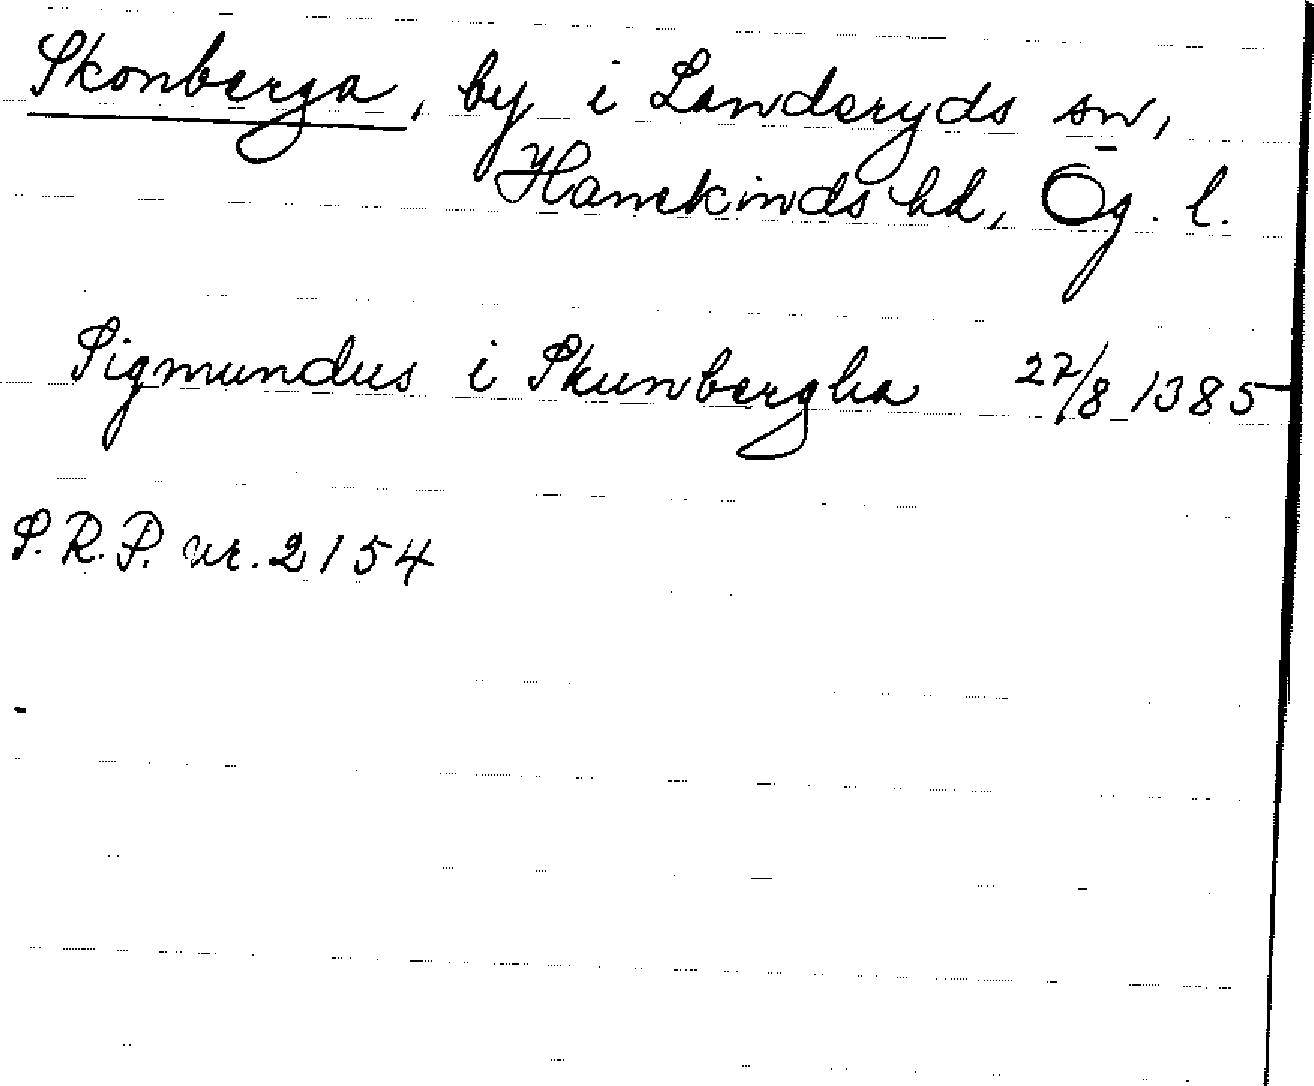 Skonberga, by i Landeryds sn,
Hanekinds hd, Ög. l.
Sigmundus i Skunbergha 27/8 1385
S.R.P. nr. 2154